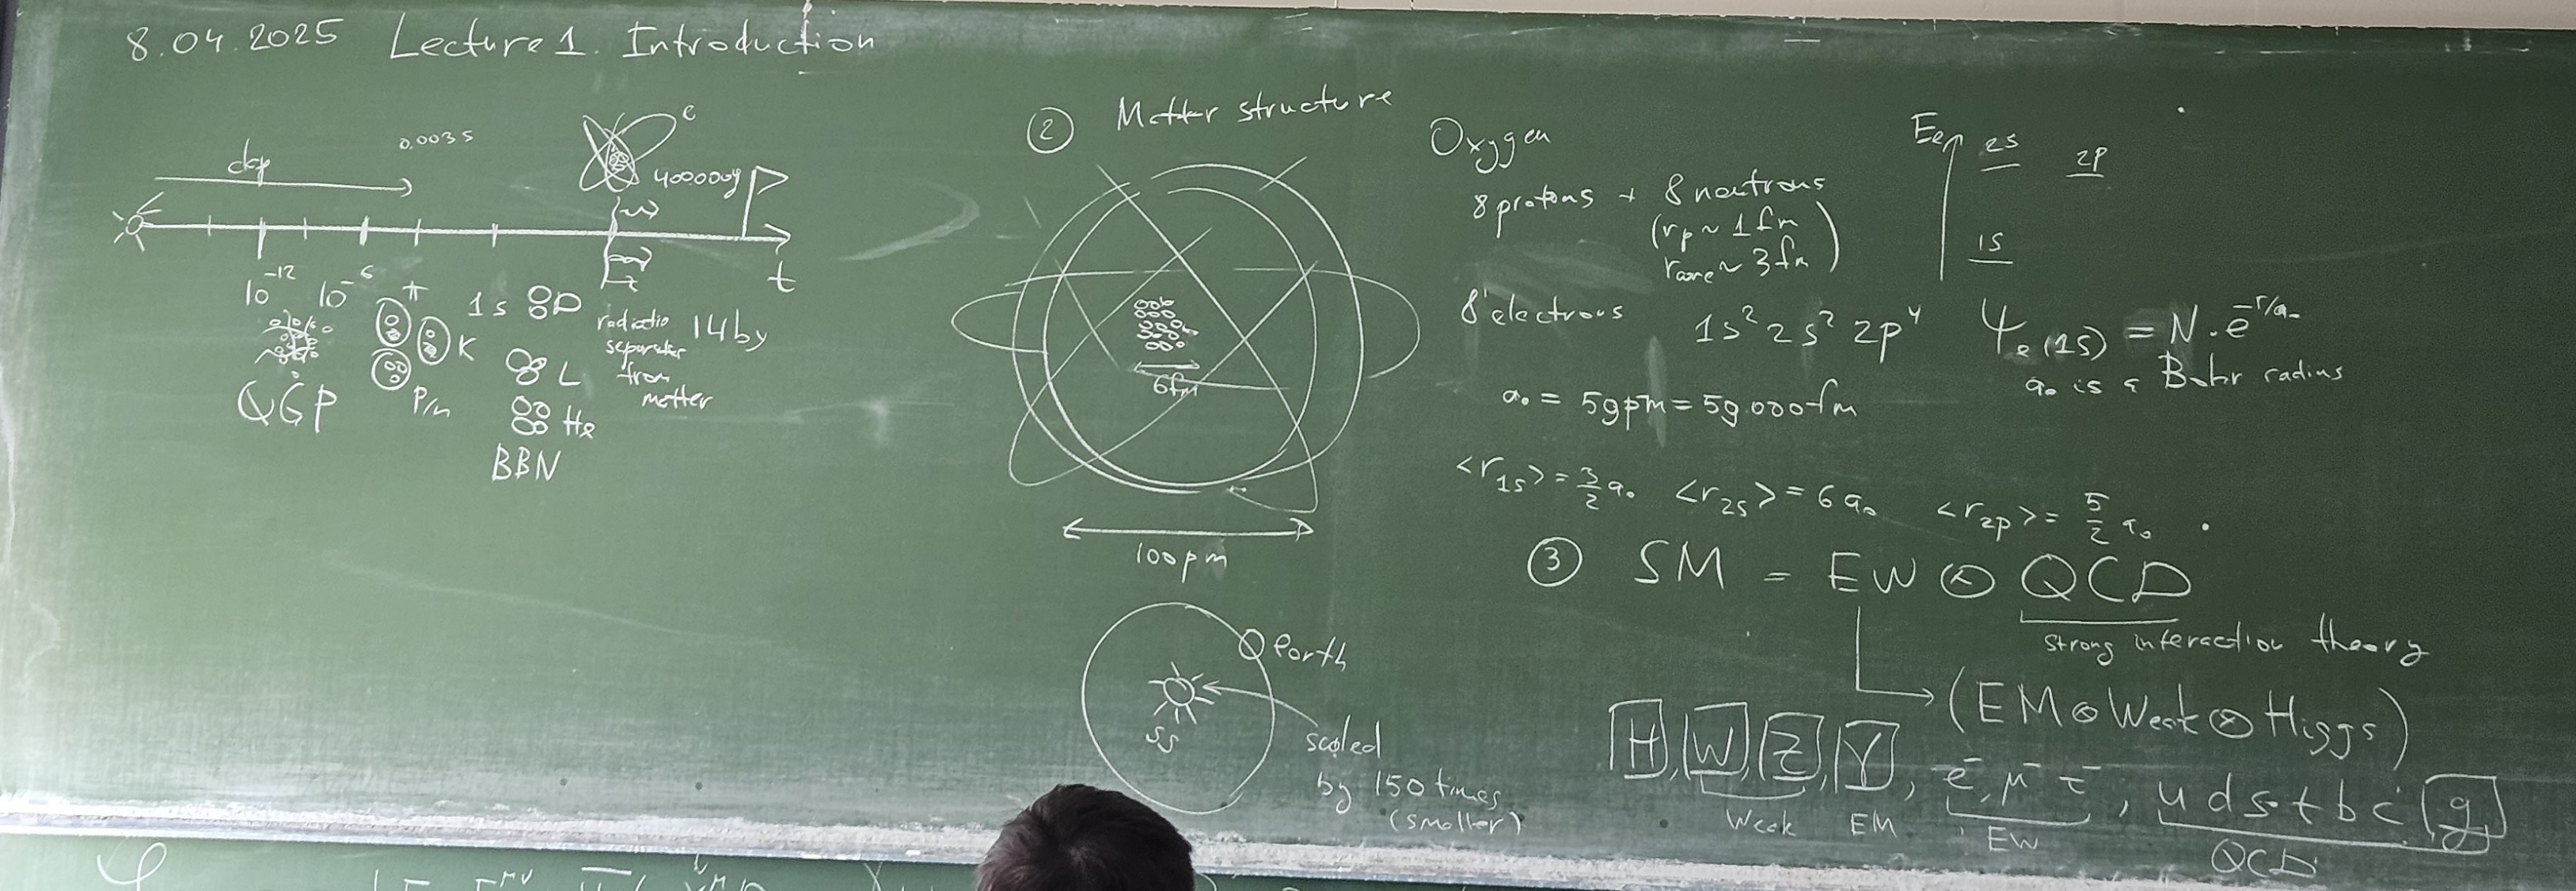 8.04.2025 Lecture 1. Introduction
0.003 s
e
400000y
t
10^-12 10^-6 π
K
P/n
QGP
1s D
L
He
BBN
radiatio
separates
from
matter
14by
② Matter structure
6fm
100pm
Earth
SS
scaled
by 150 times
(smaller)
Oxygen
8 protons + 8 neutrons
(rp ~ 1 fm
rcore ~ 3 fm)
8 electrons 1s² 2s² 2p⁴
Ee 2s 2p
1s
Ψe(1s) = N · e^-r/a₀
a₀ is a Bohr radius
a₀ = 59pm = 59.000 fm
<r1s> = 3/2 a₀ <r2s> = 6a₀ <r2p> = 5/2 a₀
③ SM = EW ⊗ QCD
strong interaction theory
(EM ⊗ Weak ⊗ Higgs)
H, W, Z, γ, e⁻, μ⁻ τ⁻, u d s t b c g
Weak EM EW QCD